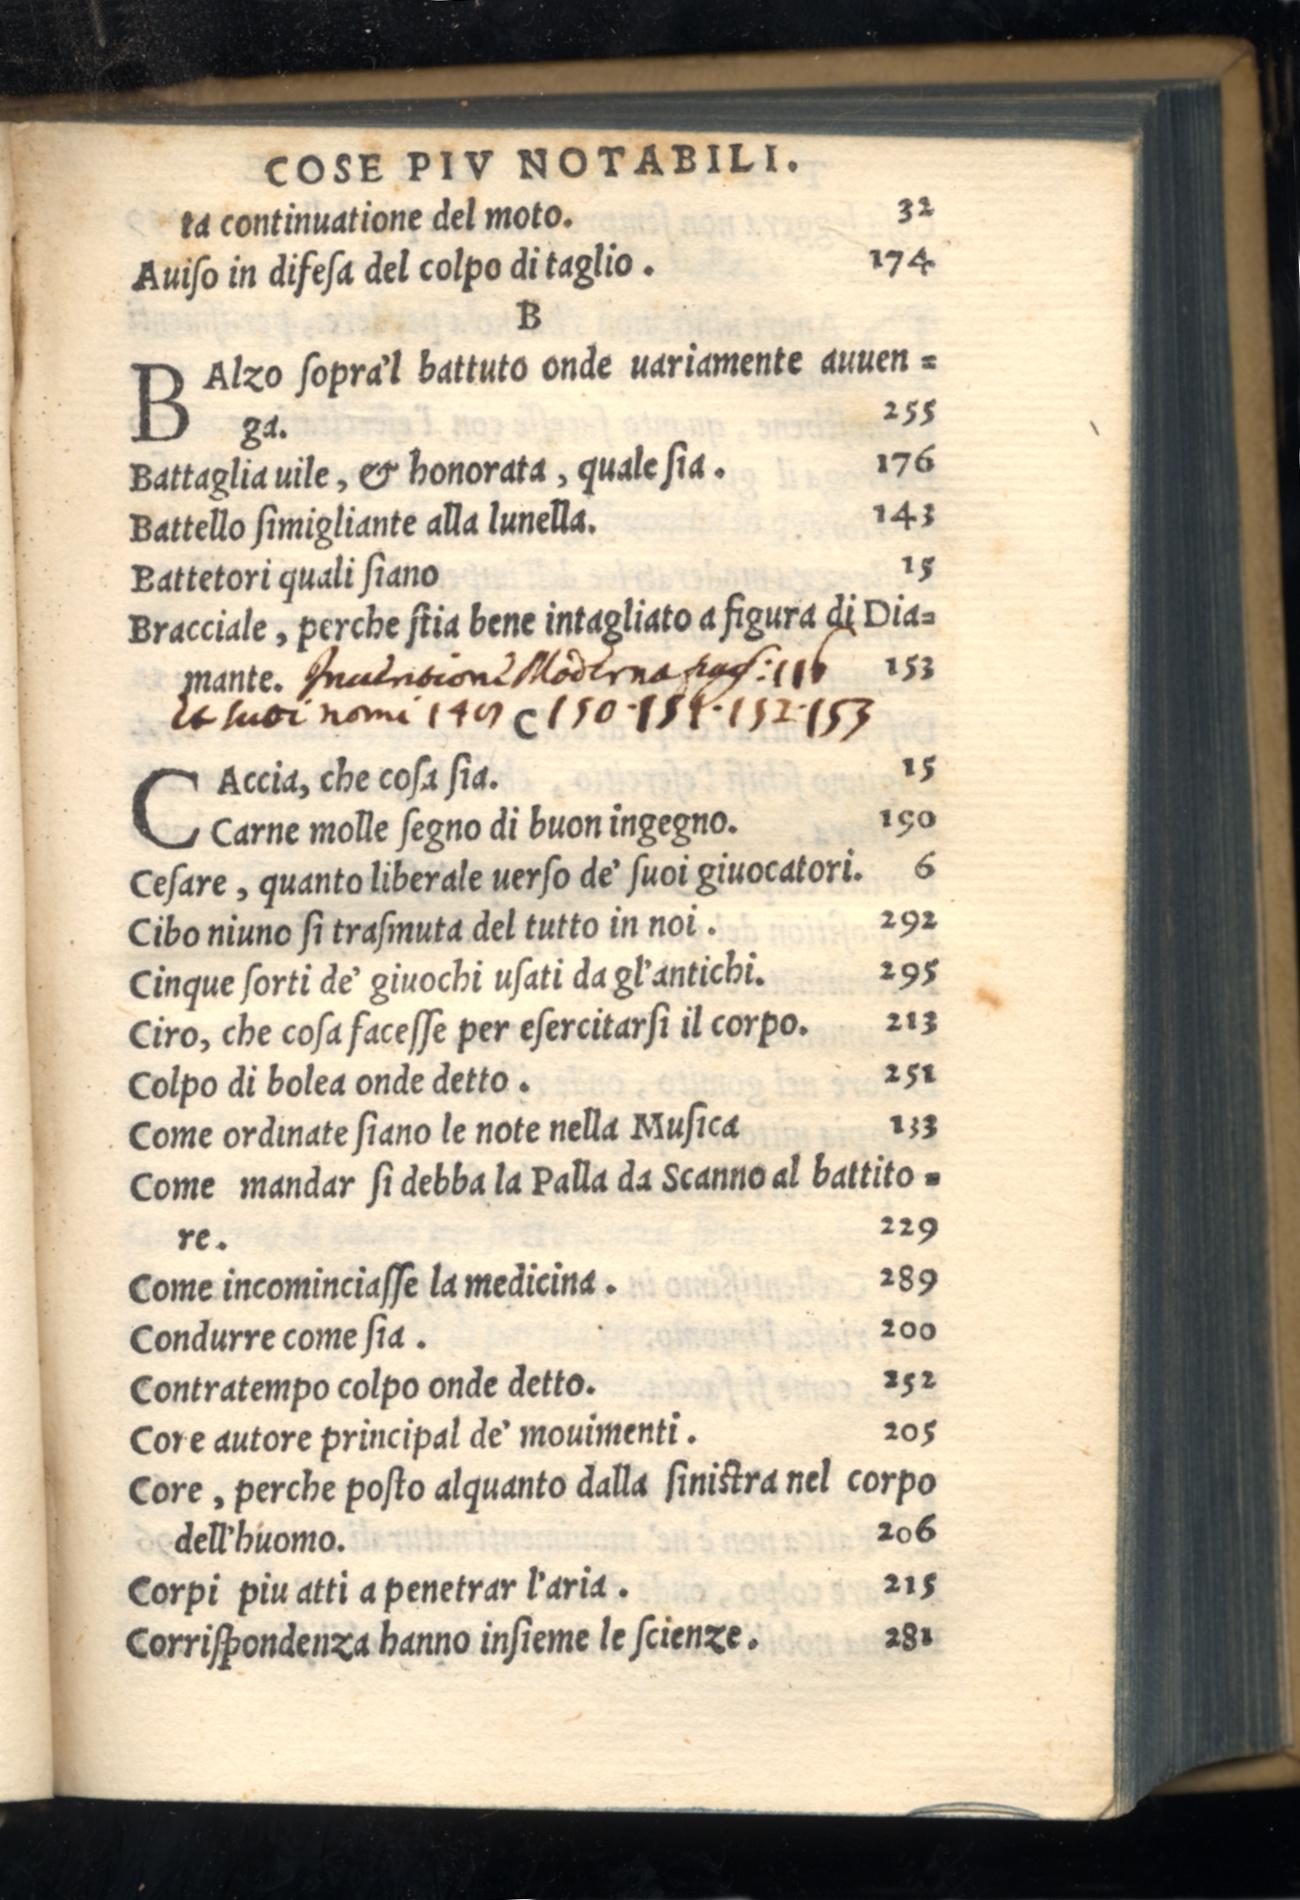 COSE PIV NOTABILI.
ta continuatione del moto. 32
Auiſo in difeſa del colpo di taglio . 174
B
BAlzo ſopra'l battuto onde uariamente auuen=
ga. 255
Battaglia uile, & honorata, quale ſia . 176
Battello ſimigliante alla lunella. 143
Battetori quali ſiano 15
Bracciale, perche ſtia bene intagliato a figura di Dia=
mante. Inuentione Moderna pag: 116 153
Et suoi nomi 149 C 150·151·152·153
CAccia, che coſa ſia. 15
Carne molle ſegno di buon ingegno. 190
Ceſare, quanto liberale uerſo de' ſuoi giuocatori. 6
Cibo niuno ſi traſmuta del tutto in noi . 292
Cinque ſorti de' giuochi uſati da gl'antichi. 295
Ciro, che coſa faceſſe per eſercitarſi il corpo. 213
Colpo di bolea onde detto . 251
Come ordinate ſiano le note nella Muſica 133
Come mandar ſi debba la Palla da Scanno al battito=
re. 229
Come incominciaſſe la medicina . 289
Condurre come ſia . 200
Contratempo colpo onde detto. 252
Core autore principal de' mouimenti . 205
Core, perche poſto alquanto dalla ſiniſtra nel corpo
dell'huomo. 206
Corpi piu atti a penetrar l'aria . 215
Corriſpondenza hanno inſieme le ſcienze. 281